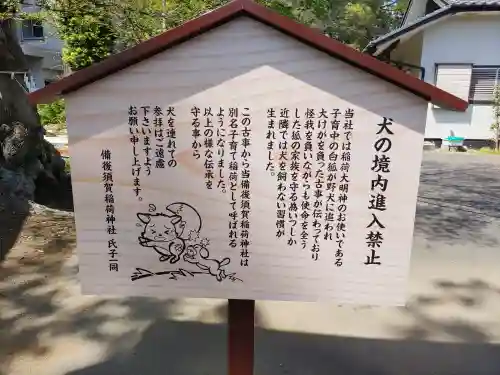 犬の境内進入禁止
当社では稲荷大明神のお使いである
子育中の白狐が野犬に追われ
大けがを負った古事が伝わっており
怪我を負いながらも使命を全う
した狐の家族を守る為いつしか
近隣では犬を飼わない習慣が
生まれました。
この古事から当備後須賀稲荷は
別名子育て稲荷として呼ばれる
ようになりました。
以上の様な伝承を
守る事から
犬を連れての
参拝はご遠慮
下さいますよう
お願い申し上げます。
備後須賀稲荷神社 氏子一同